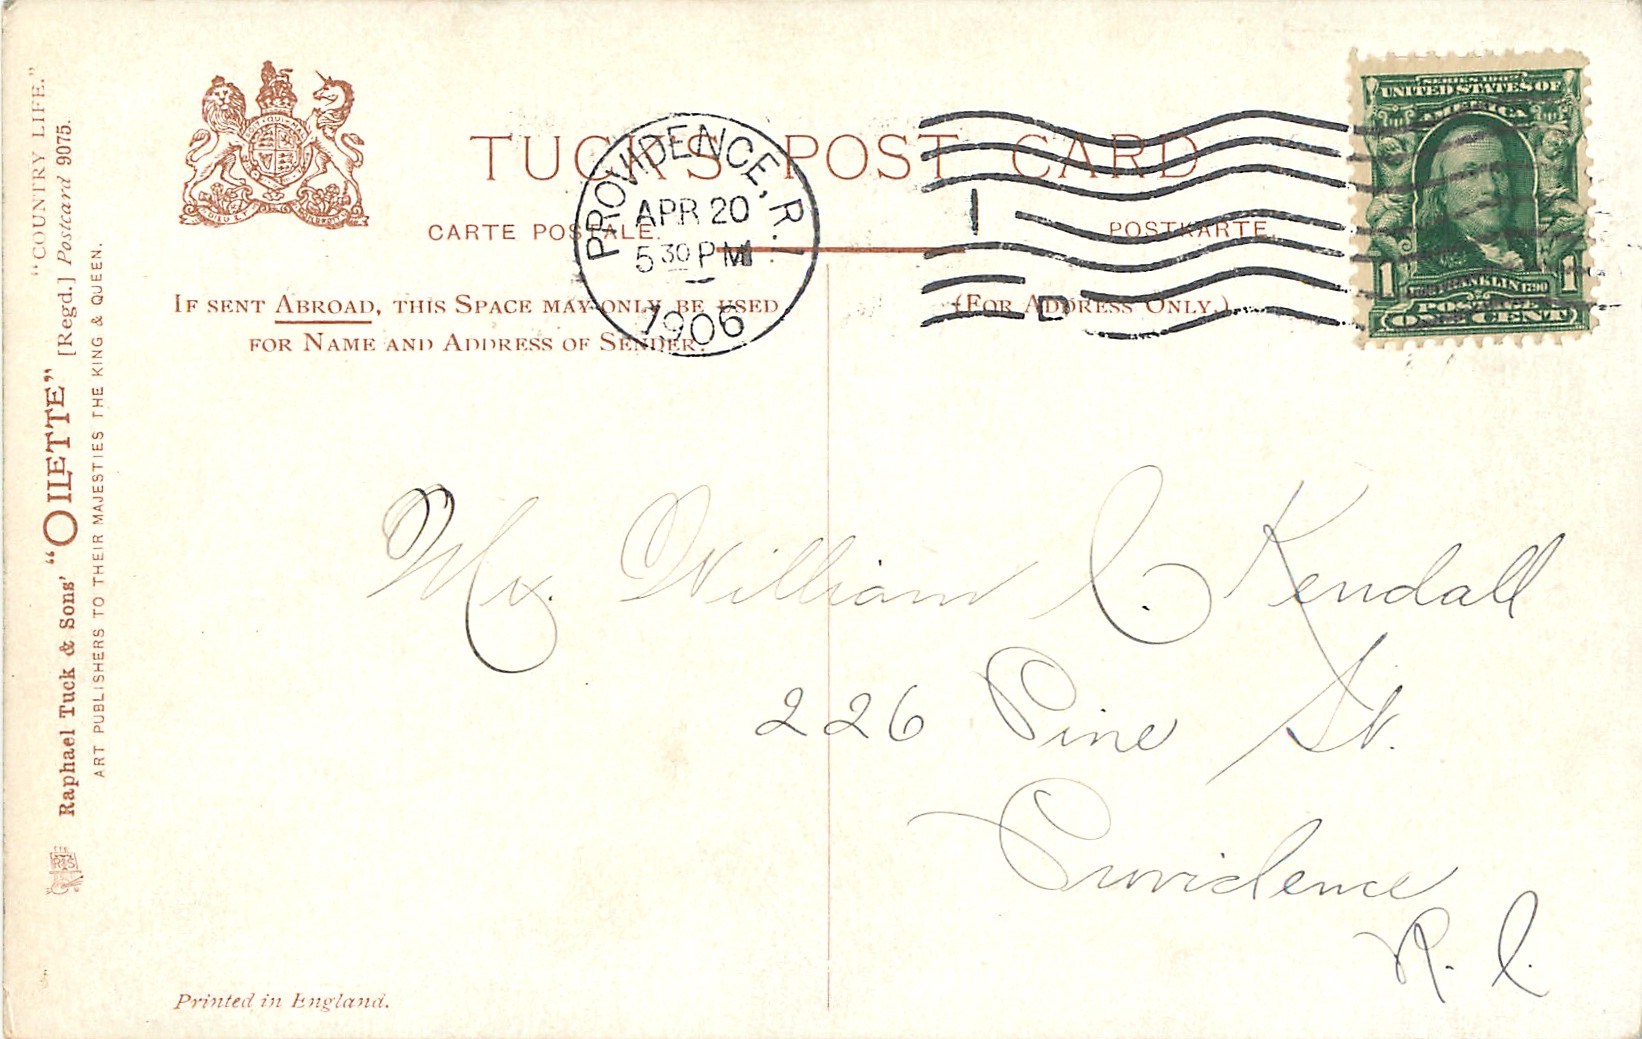 "COUNTRY LIFE."
Raphael Tuck & Sons' "OILETTE" [Regd.] Postcard 9075.
ART PUBLISHERS TO THEIR MAJESTIES THE KING & QUEEN.
TUCK'S POST CARD
CARTE POSTALE.
POSTKARTE.
IF SENT ABROAD, THIS SPACE MAY ONLY BE USED
FOR NAME AND ADDRESS OF SENDER.
(FOR ADDRESS ONLY.)
PROVIDENCE, R.I.
APR 20
5 30 PM
1906
1
D
SERIES 1902
UNITED STATES OF
AMERICA
FRANKLIN 1790
1 POSTAGE 1
ONE CENT
Mr. William C. Kendall
226 Pine St.
Providence
R. I.
Printed in England.